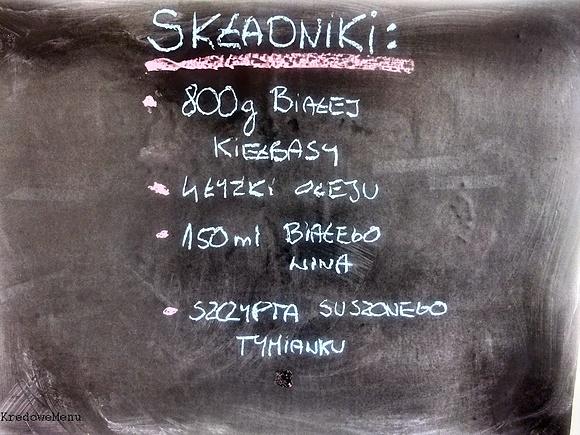 SKŁADNIKI:
800g BIAŁEJ
KIEŁBASY
4 ŁYŻKI OLEJU
150ml BIAŁEGO
WINA
SZCZYPTA SUSZONEGO
TYMIANKU
KredoweMenu